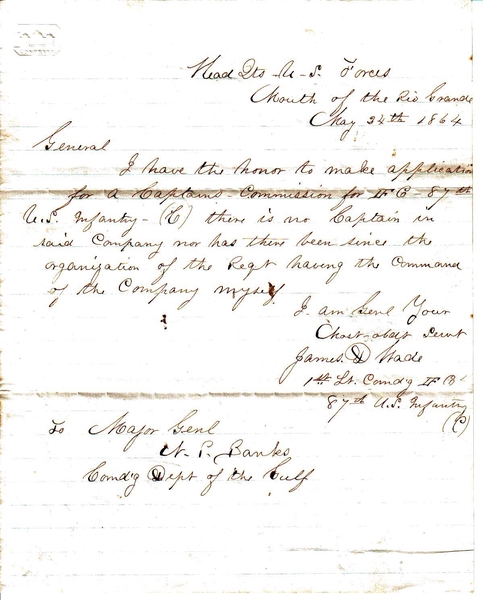 Head Qts U. S. Forces
Mouth of the Rio Grande
May 24th 1864
General
I have the honor to make application
for a Captains Commission for 87th
U.S. Infantry - (C) there is no Captain in
said Company nor has there been since the
organization of the Regt having the Command
of the Company myself
I am Genl Your
Obdt Servt
James D Wade
1st Lt. Comd'g
87th U.S. Infantry
(C)
To Major Genl
N. P. Banks
Comd'g Dept of the Gulf